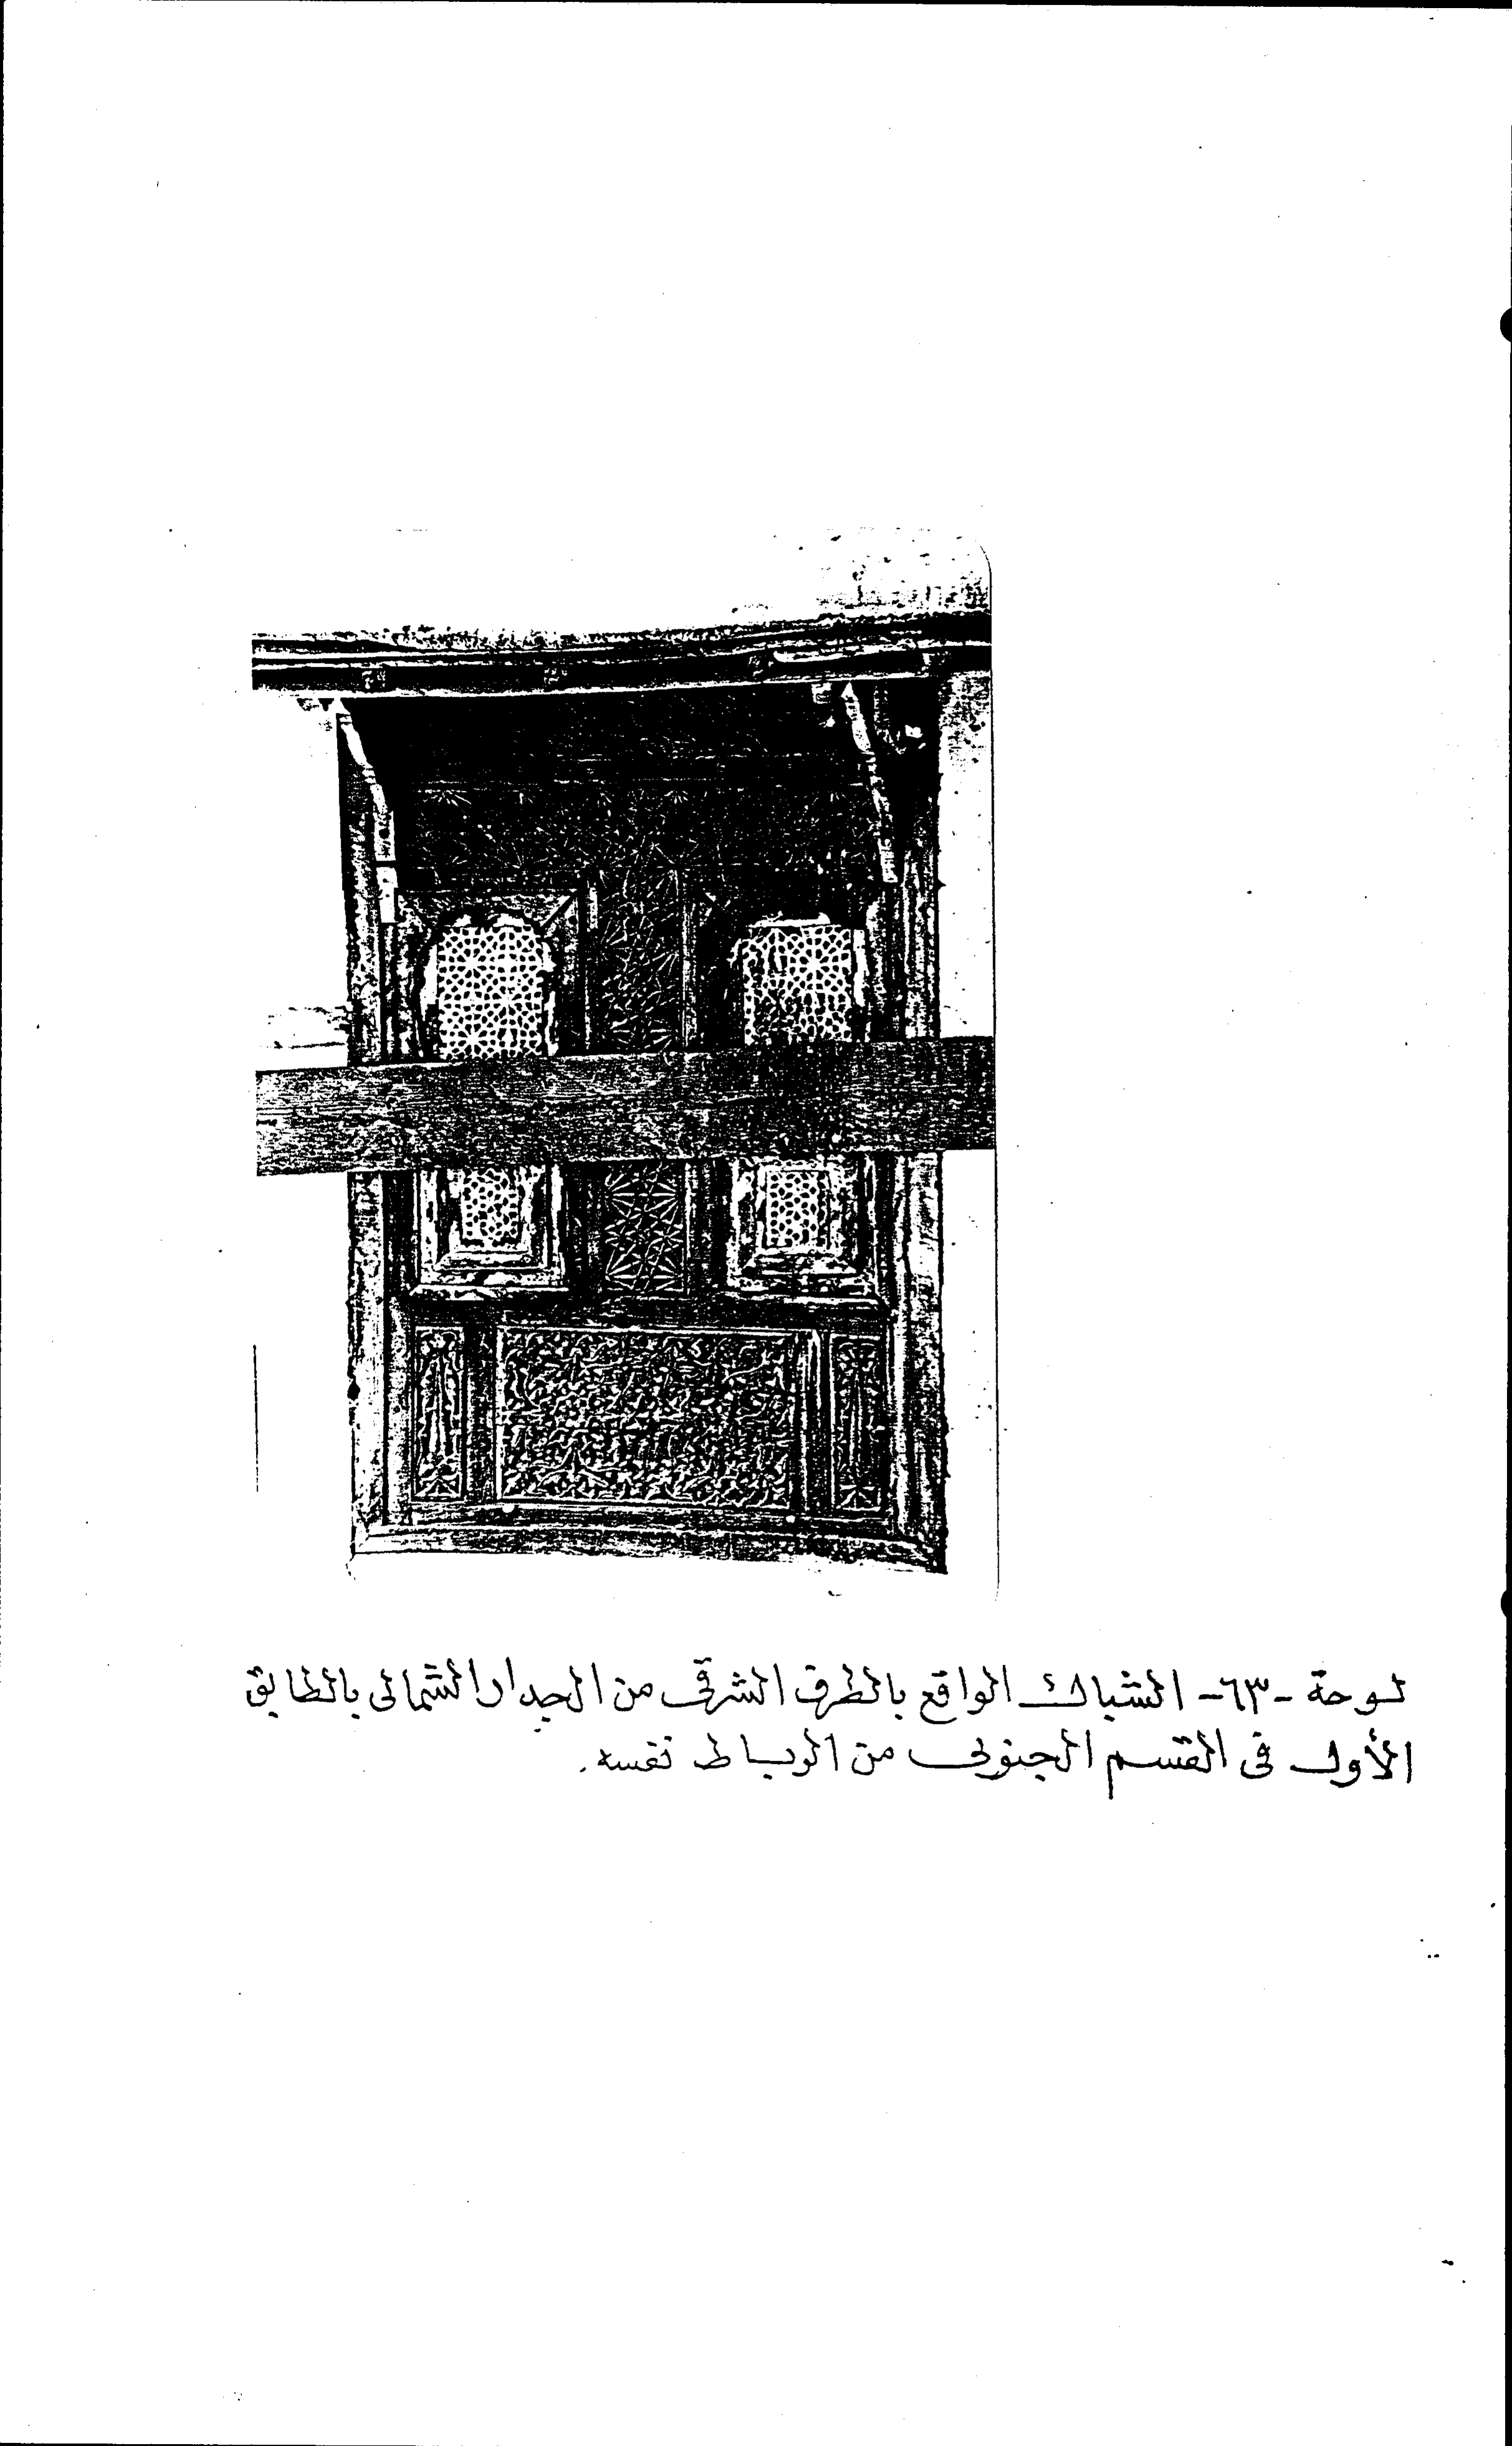 لوحة -٦٣- الشباك الواقع بالطرف الشرقى من الجدار الشمالى بالطابق
الأول فى القسم الجنوبى من الرباط نفسه.